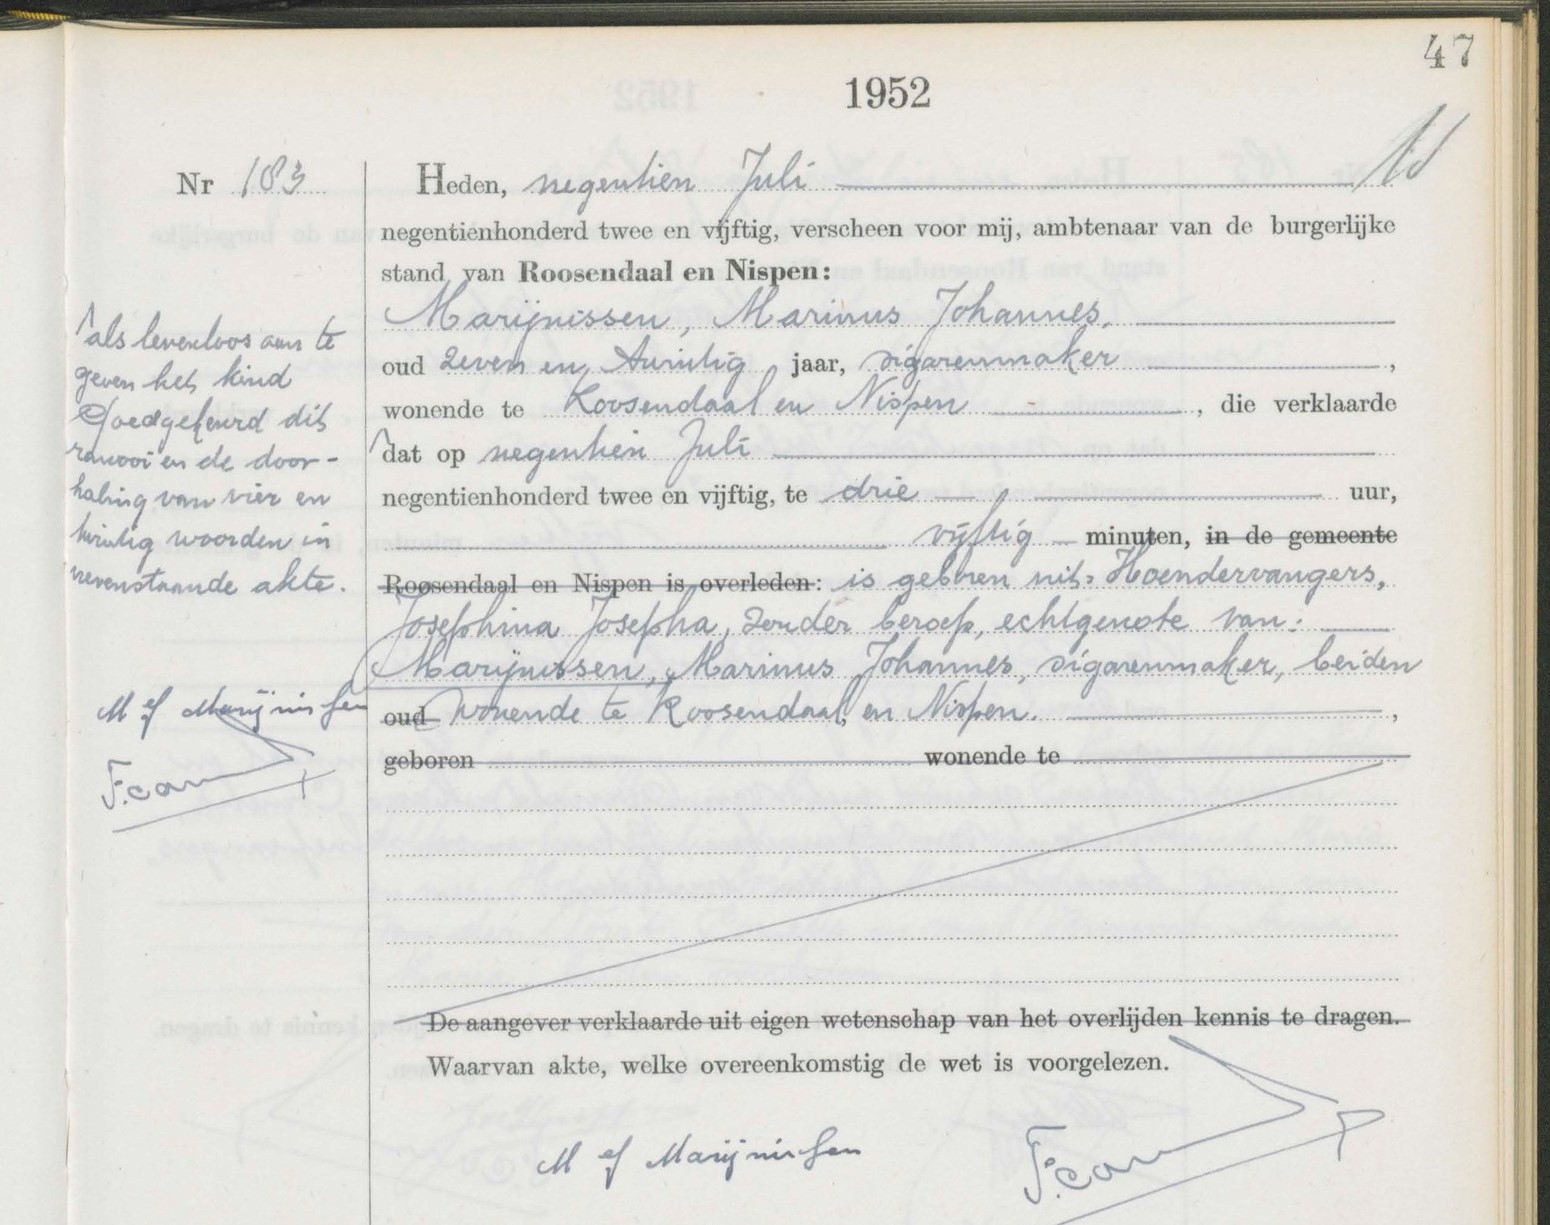 47
1952
Nr 183
Heden, negentien Juli
negentienhonderd twee en vijftig, verscheen voor mij, ambtenaar van de burgerlijke
stand van Roosendaal en Nispen:
Marijnissen, Marinus Johannes,
oud zeven en twintig jaar, sigarenmaker ,
wonende te Roosendaal en Nispen , die verklaarde
dat op negentien Juli
negentienhonderd twee en vijftig, te drie uur,
vijftig minuten, in de gemeente
Roosendaal en Nispen is overleden: is geboren uit: Hoendervangers,
Josephina Josepha, zonder beroep, echtgenote van:
Marijnissen, Marinus Johannes, sigarenmaker, beiden
oud wonende te Roosendaal en Nispen. ,
geboren wonende te
De aangever verklaarde uit eigen wetenschap van het overlijden kennis te dragen.
Waarvan akte, welke overeenkomstig de wet is voorgelezen.
M J Marijnissen
als levenloos aan te
geven het kind
Goedgekeurd dit
renvooi en de door-
haling van vier en
twintig woorden in
nevenstaande akte.
M J Marijnissen